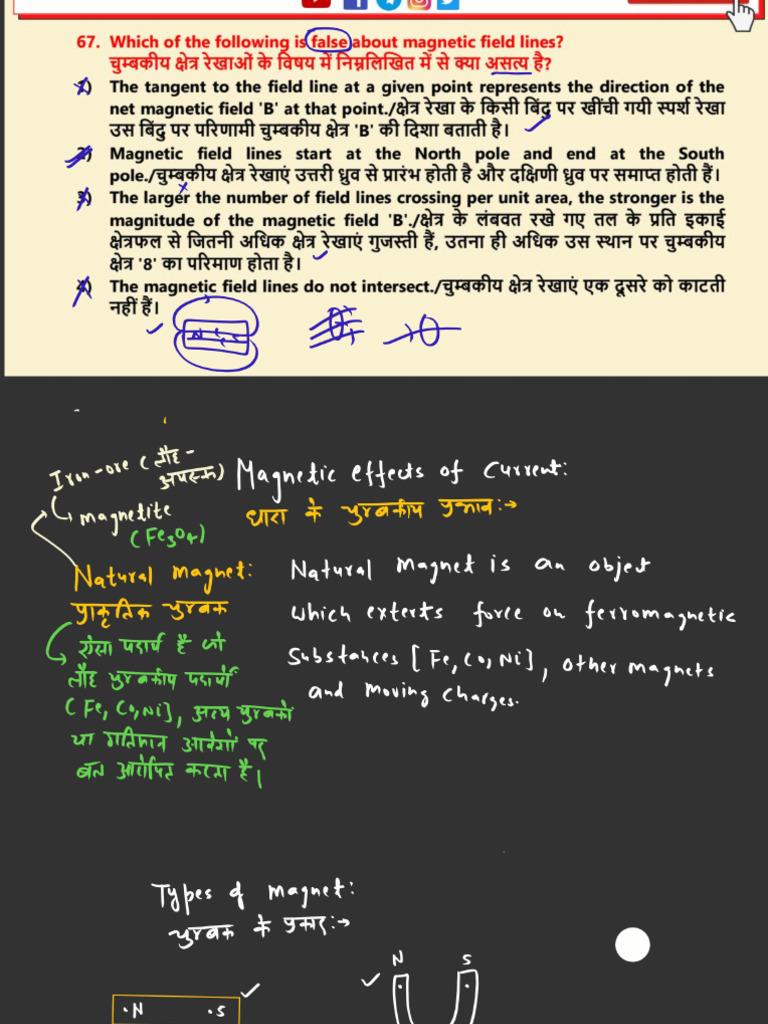 67. Which of the following is false about magnetic field lines?
चुम्बकीय क्षेत्र रेखाओं के विषय में निम्नलिखित में से क्या असत्य है?
1) The tangent to the field line at a given point represents the direction of the
net magnetic field 'B' at that point./क्षेत्र रेखा के किसी बिंदु पर खींची गयी स्पर्श रेखा
उस बिंदु पर परिणामी चुम्बकीय क्षेत्र 'B' की दिशा बताती है।
2) Magnetic field lines start at the North pole and end at the South
pole./चुम्बकीय क्षेत्र रेखाएं उत्तरी ध्रुव से प्रारंभ होती है और दक्षिणी ध्रुव पर समाप्त होती हैं।
3) The larger the number of field lines crossing per unit area, the stronger is the
magnitude of the magnetic field 'B'./क्षेत्र के लंबवत रखे गए तल के प्रति इकाई
क्षेत्रफल से जितनी अधिक क्षेत्र रेखाएं गुजस्ती हैं, उतना ही अधिक उस स्थान पर चुम्बकीय
क्षेत्र '8' का परिमाण होता है।
4) The magnetic field lines do not intersect./चुम्बकीय क्षेत्र रेखाएं एक दूसरे को काटती
नहीं हैं।
N S
Iron-ore (लौह-
अयस्क)
magnetite
(Fe3O4)
Magnetic effects of Current:
धारा के चुम्बकीय प्रभाव:→
Natural Magnet:
प्राकृतिक चुम्बक
ऐसा पदार्थ है जो
लौह चुम्बकीय पदार्थों
(Fe, Co, Ni], अन्य चुम्बकों
या गतिमान आवेशों पर
बल आरोपित करता है।
Natural Magnet is an object
which exterts force on ferromagnetic
Substances [Fe, Co, Ni], other magnets
and moving charges.
Types of magnet:
चुम्बक के प्रकार:→
N S
N S